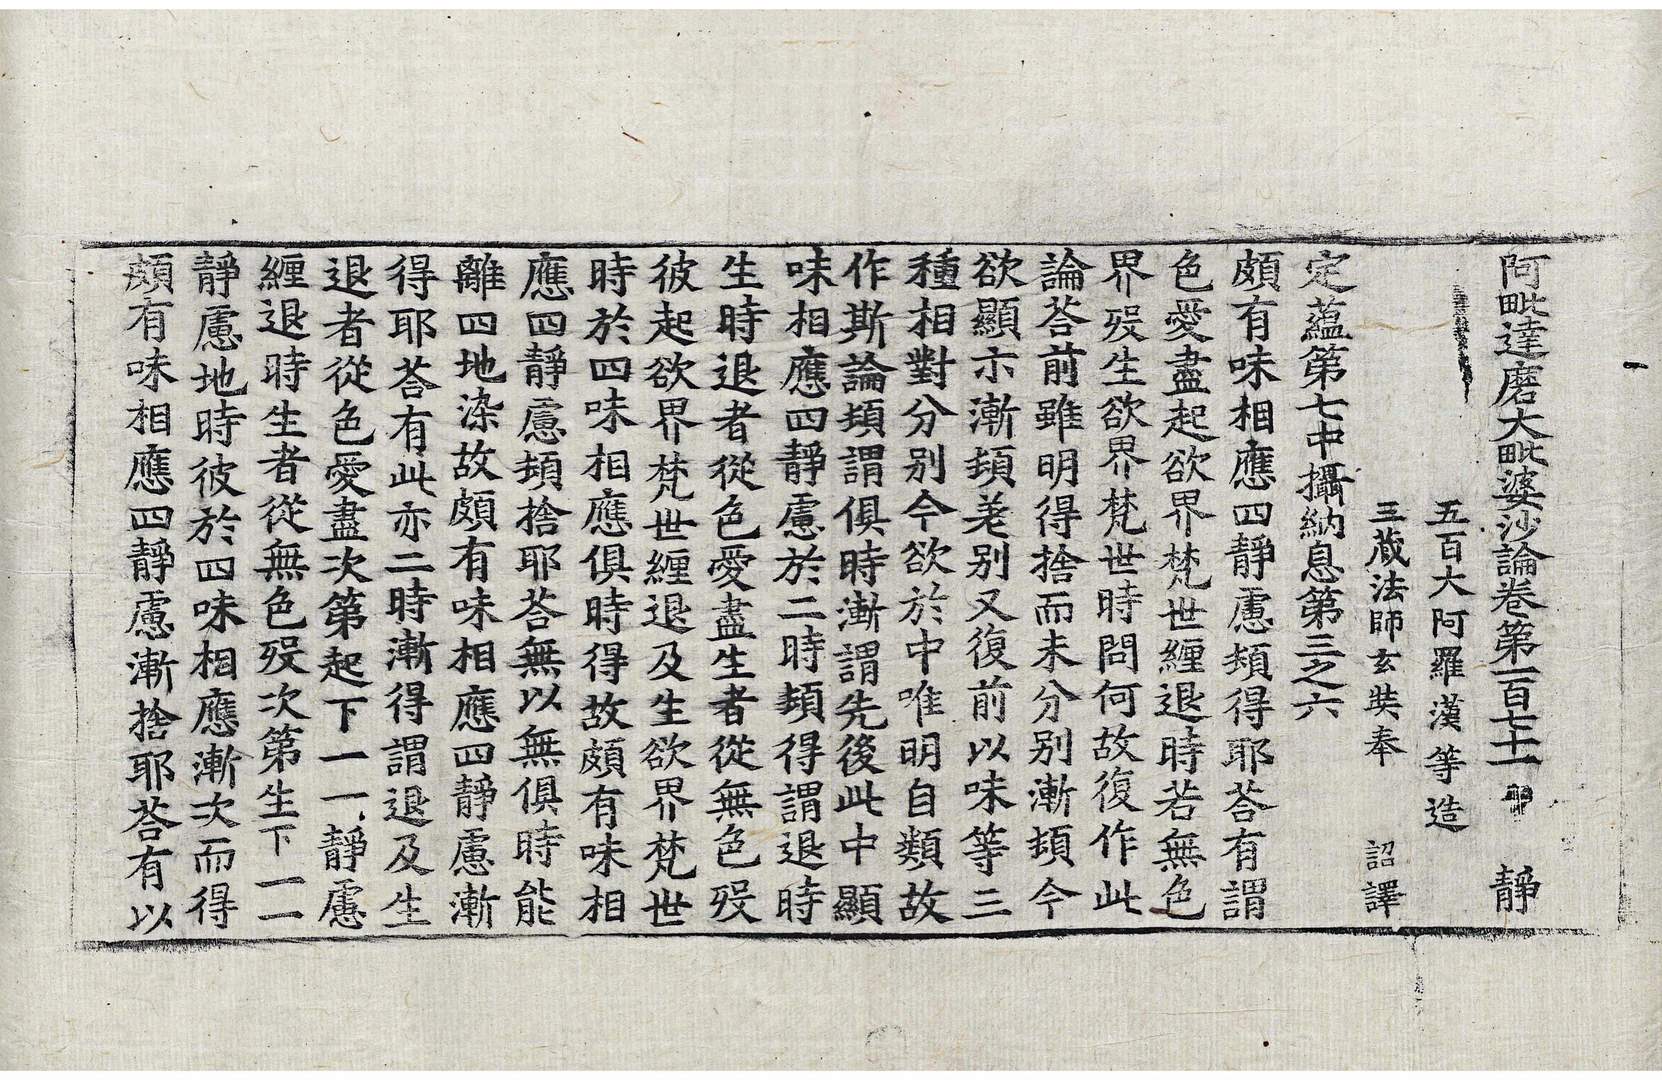 阿毗達磨大毗婆沙論卷第一百七十一 靜
五百大阿羅漢等造
三藏法師玄奘奉 詔譯
定蘊第七中攝納息第三之六
頗有味相應四靜慮頓得耶荅有謂
色愛盡起欲界梵世纏退時若無色
界歿生欲界梵世時問何故復作此
論荅前雖明得捨而未分別漸頓今
欲顯示漸頓差別又復前以味等三
種相對分別今欲於中唯明自類故
作斯論頓謂俱時漸謂先後此中顯
味相應四靜慮於二時頓得謂退時
生時退者從色愛盡生者從無色歿
彼起欲界梵世纏退及生欲界梵世
時於四味相應俱時得故頗有味相
應四靜慮頓捨耶荅無以無俱時能
離四地染故頗有味相應四靜慮漸
得耶荅有此亦二時漸得謂退及生
退者從色愛盡次第起下一一靜慮
纏退時生者從無色歿次第生下一一
靜慮地時彼於四味相應漸次而得
頗有味相應四靜慮漸捨耶荅有以